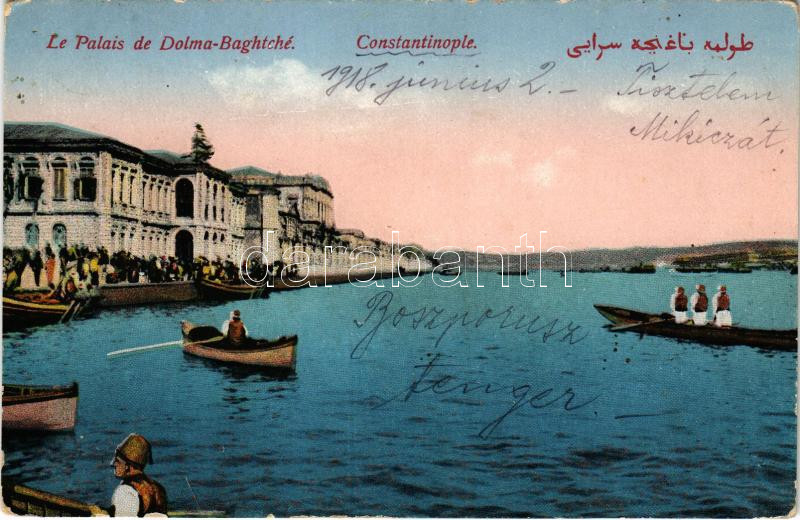 Le Palais de Dolma-Baghtché.
Constantinople.
طولمه باغچه سرایی
1918. június 2. -
Tisztelem
Mikiczát.
darabanth
Boszporusz
tenger -